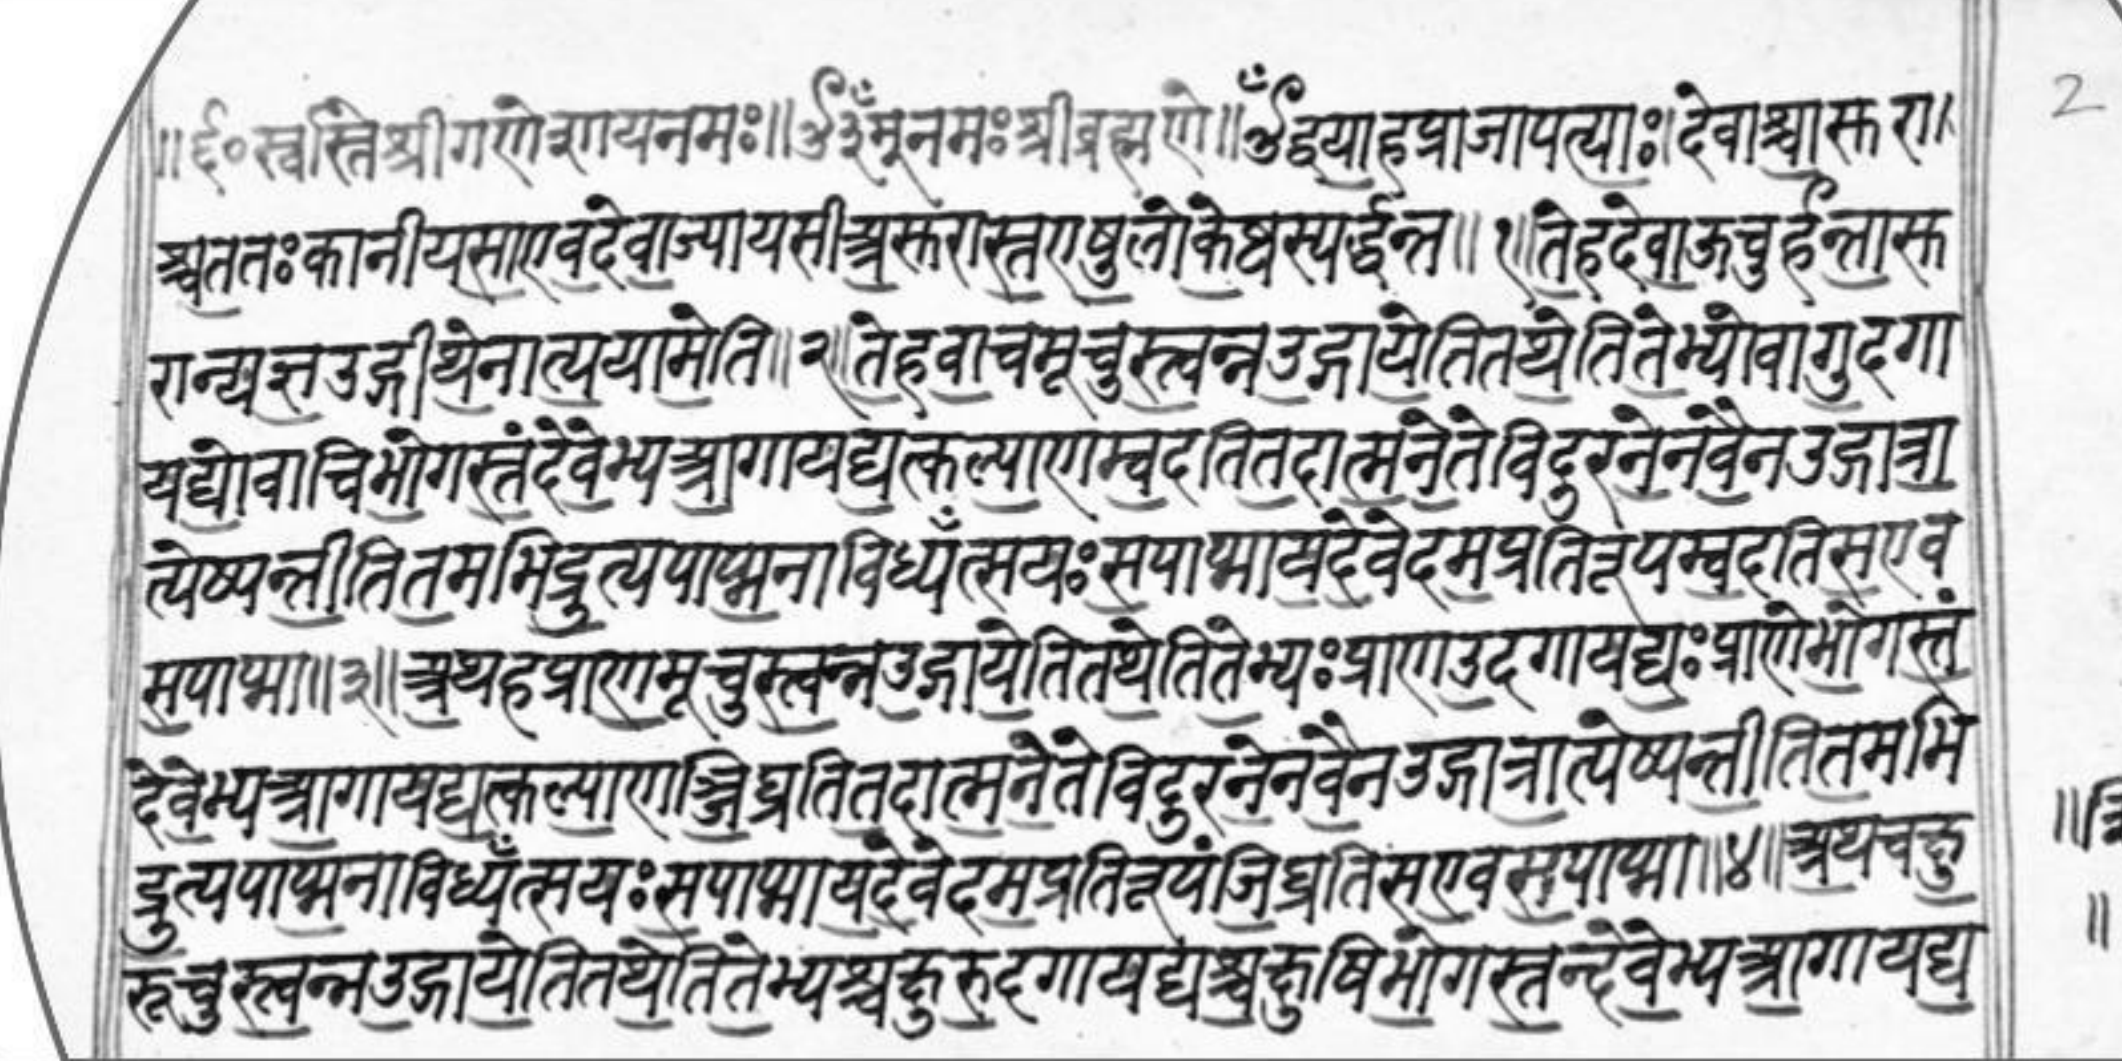 ॥ई०स्वस्तिश्रीगणेशायनमः॥ॐनमःश्रीब्रह्मणे॥ॐद्वयाहप्राजापत्याः।देवाश्चासुरा। 2
श्चततःकानीयसाएवदेवाज्यायसीअसुरास्तएषुलोकेष्वस्पर्द्धन्त॥१॥तेहदेवाऊचुर्हन्तासु
रान्यज्ञउद्गीथेनात्ययामेति॥२॥तेहवाचमूचुस्त्वन्नउद्गायेतितथेतितेभ्योवागुदगा
यद्योवाचिभोगस्तंदेवेभ्यआगायद्यत्कल्याणम्वदतितदात्मनेतेविदुरनेनवैनउद्गात्रा
त्येष्यन्तीतितमभिद्रुत्यपाप्मनाविध्यँत्सयःसपाप्मायदेवेदमप्रतिरूपम्वदतिसएव
सपाप्मा॥३॥अथहप्राणमूचुस्त्वन्नउद्गायेतितथेतितेभ्यःप्राणउदगायद्यःप्राणेभोगस्तं
देवेभ्यआगायद्यत्कल्याणञ्जिघ्रतितदात्मनेतेविदुरनेनवैनउद्गात्रात्येष्यन्तीतितमभि
द्रुत्यपाप्मनाविध्यँत्सयःसपाप्मायदेवेदमप्रतिरूपंजिघ्रतिसएवसपाप्मा॥४॥अथचक्षु
रूचुस्त्वन्नउद्गायेतितथेतितेभ्यश्चक्षुरुदगायद्यश्चक्षुषिभोगस्तन्देवेभ्यआगायद्य